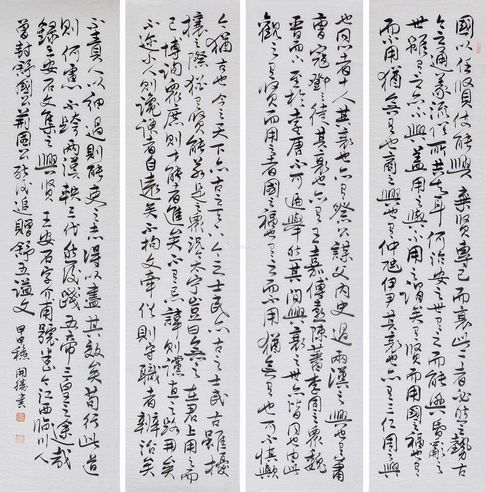 國以任賢使能興棄賢專己而衰此二者必然之勢古
今之通義流俗所共知耳何治安之世有之而能興昏亂之
世雖有之亦不興蓋用之與不用之謂矣有賢而用國之福也有之
而不用猶無有也商之興也有仲虺伊尹其衰也有三仁周之興
也同心者十人其衰也亦有祭公謀父內史過兩漢之興也有蕭
曹寇鄧之徒其衰也亦有王嘉傅喜陳蕃李固之眾魏
晉而下至於李唐不可遍舉然其間興衰之世亦皆同也由此
觀之有賢而用之者國之福也有之而不用猶無有也可不慎歟
今猶古也今之天下亦古之天下今之士民亦古之士民古雖擾
攘之際猶有賢能若是之眾況今太寧豈曰無之在君上用之而
已博詢眾庶則才能者進矣不有忌諱則讜直之路開矣
不邇小人則讒諛者自遠矣不拘文牽俗則守職者辨治矣
不責人以細過則能吏之志得以盡其效矣苟行此道
則何慮不跨兩漢軼三代然後踐五帝三皇之塗哉
錄王安石文集之興賢 王安石字介甫號半山江西臨川人
曾封舒國公荊國公死後追贈舒王謚文 甲申秋開勝書